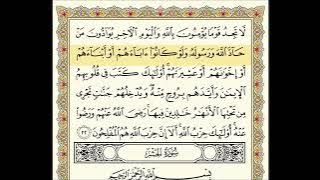 لَا تَجِدُ قَوْمًا يُؤْمِنُونَ بِاللَّهِ وَالْيَوْمِ الْآخِرِ يُوَادُّونَ مَنْ
حَادَّ اللَّهَ وَرَسُولَهُ وَلَوْ كَانُوا آبَاءَهُمْ أَوْ أَبْنَاءَهُمْ
أَوْ إِخْوَانَهُمْ أَوْ عَشِيرَتَهُمْ أُولَئِكَ كَتَبَ فِي قُلُوبِهِمُ
الْإِيمَانَ وَأَيَّدَهُم بِرُوحٍ مِّنْهُ وَيُدْخِلُهُمْ جَنَّاتٍ تَجْرِي
مِن تَحْتِهَا الْأَنْهَارُ خَالِدِينَ فِيهَا رَضِيَ اللَّهُ عَنْهُمْ وَرَضُوا
عَنْهُ أُولَئِكَ حِزْبُ اللَّهِ أَلَا إِنَّ حِزْبَ اللَّهِ هُمُ الْمُفْلِحُونَ ٢٢
سُورَةُ الْحَشْرِ
بِسْمِ اللَّهِ الرَّحْمَنِ الرَّحِيمِ